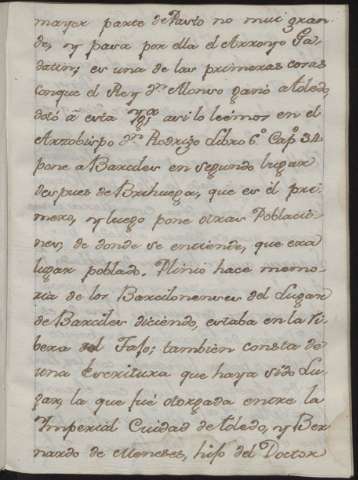 mayor parte de Pasto no mui gran
de, y pasa por ella el Arroyo Ga
datin; es una de las primeras cosas
conque el Rey dⁿ Alonso ganó a toledo,
dotó â esta Ygª asi lo leemos en el
Arzobispo dⁿ Rodrigo Libro 6º Capº 24.
pone a Barciles en segundo lugar
despues de Brihuega, que es el pri
mero, y luego pone otras Poblacio
nes, de donde se entiende, que era
lugar poblado. Plinio hace memo
ria de los Barcilonenses del Lugar
de Barciles diciendo, estaba en la ri
bera del Tajo; tambien consta de
una Escritura que haya sido Lu
gar, la que fué otorgada entre la
Imperial Ciudad de toledo, y Ber
nardo de Meneses, hijo del Doctor